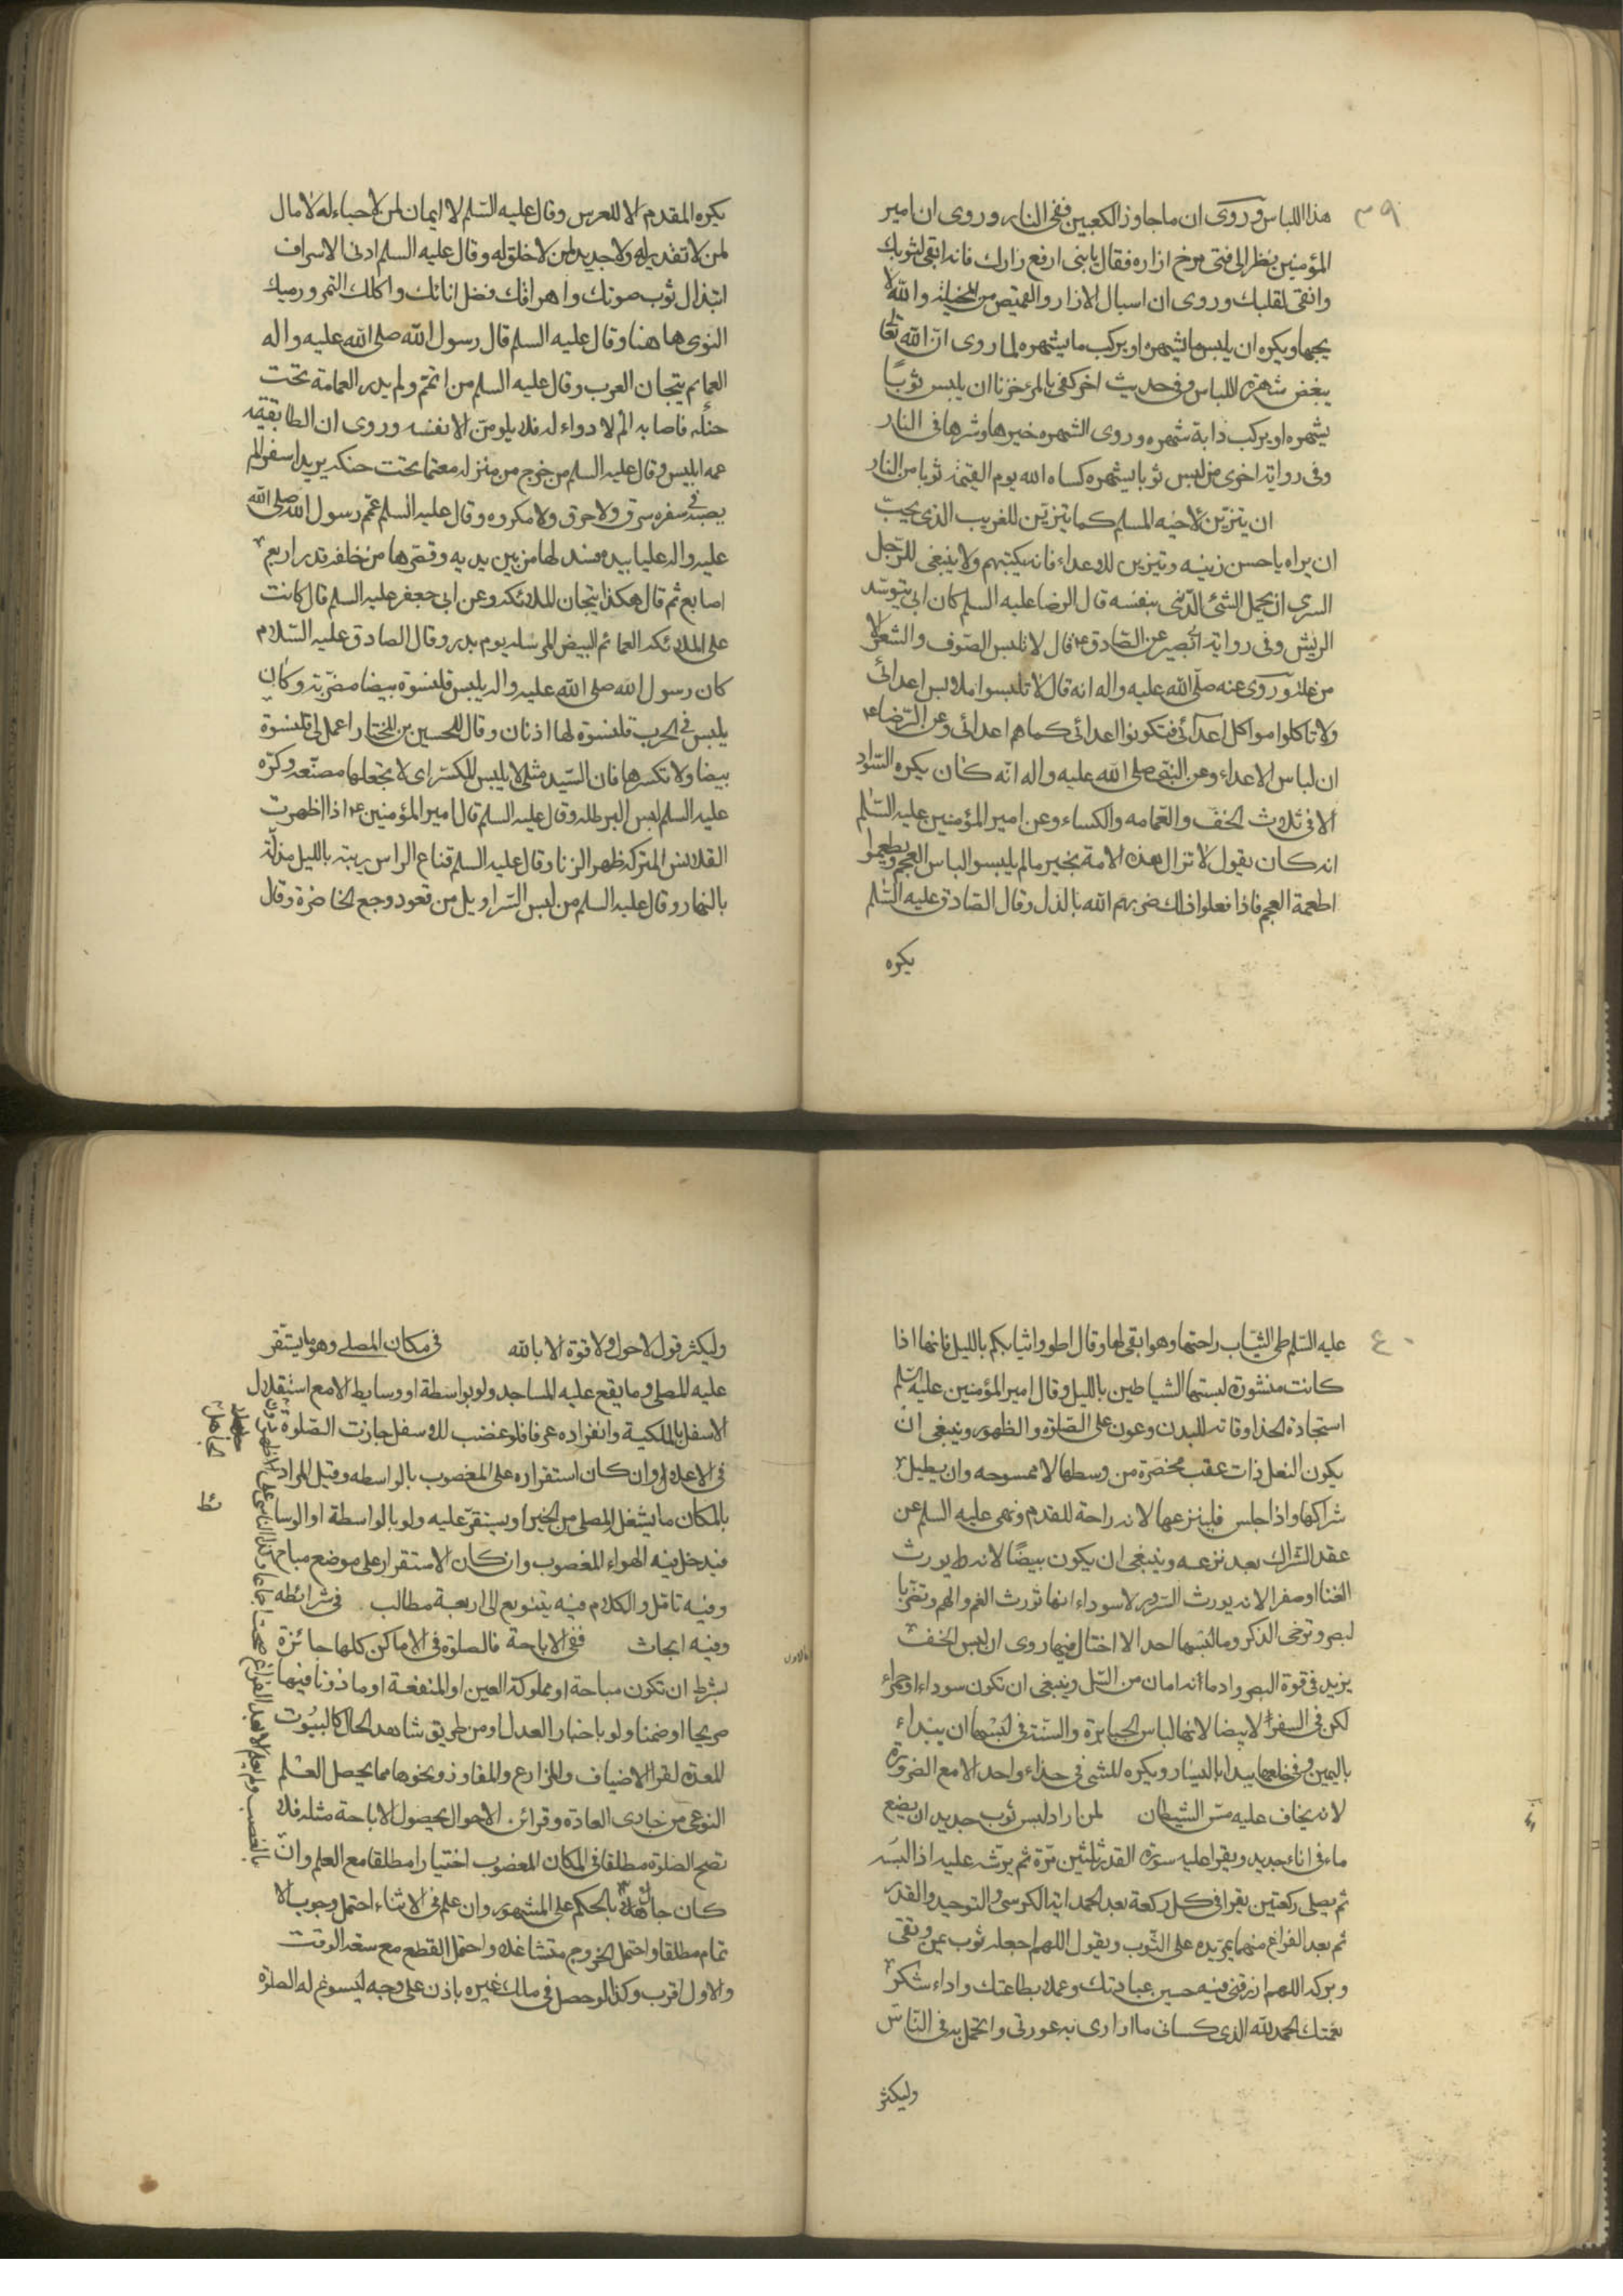 ٣٩
هذا اللباس وروى ان ما جاوز الكعبين ففى النار وروى ان امير
المؤمنين نظر الى فتى مرخ ازاره فقال يابنى ارفع زارك فانه ابقى لثوبك
وانقى لقلبك وروى ان اسبال الازار والقميص من المخيلة والله لا
يحبها ويكره ان يلبس ما يشهره او يركب ما يشهره لما روى ان الله تعا
يبغض شهرة اللباس وفى حديث اخر كفى بالمرء خزنا ان يلبس ثوبًا
يشهره او يركب دابة تشهره وروى الشهره خيرها وشرها فى النار
وفى رواية اخرى من لبس ثوبا يشهره كساه الله يوم القيمة ثوبا من النار
ان يتزين لاخيه المسلم كما يتزين للغريب الذى يحبّ
ان يراه باحسن زينه ويتزين للاعداء فانه يكبتهم ولا ينبغى للرّجل
السرى ان يحمل الشئ الدّنى بنفسه قال الرضا عليه السلم كان ابى يتوسّد
الريش وفى رواية ابى بصير عن الصّادق ع قال لا تلبس الصّوف والشعر الا
من علة وروى عنه صلّى الله عليه واله انه قال لا تلبسوا ملابس اعدائى
ولا تاكلوا مواكل اعدآئى فتكونوا اعدائى كما هم اعدائى وعن الرّضا ع
ان لباس الاعداء وعن النبى صلى الله عليه واله انه كان يكره السّواد
الا فى ثلاث الخف والعمامه والكساء وعن امير المؤمنين عليه السّلم
انه كان يقول لا تزال هذه الامة بخير ما لم يلبسوا لباس العجم ويطعموا
اطعمة العجم فاذا فعلوا ذالك ضربهم الله بالذل وقال الصّادق عليه السّلم
يكره
يكره المقدم الا للعرس وقال عليه السّلم لا ايمان لمن لا حياء له لا مال
لمن لا تقدير له ولا جديد لمن لا خلق له وقال عليه السلم ادنى الاسراف
ابتذال ثوب صونك واهراقك فضل انائك واكلك التمر ورميك
النوى هاهنا وقال عليه السلم قال رسول الله صلى الله عليه واله
العمايم تيجان العرب وقال عليه السلم من اعتم ولم يدر العمامة تحت
حنكه فاصابه الم لا دواء له فلا يلومن الا نفسه وروى ان الطابقية
عمه ابليس وقال عليه السلم من خرج من منزله معتما تحت حنكه يريد سفرا لم
يصبه فى سفره سرق ولا حرق ولا مكروه وقال عليه السلم عمّم رسول الله صلى الله
عليه واله عليا بيده فسدلها من بين يديه وقصّرها من خلفه قدر اربع
اصابع ثم قال هكذا تيجان الملائكه وعن ابى جعفر عليه السلم قال كانت
على الملائكه العمائم البيض المرسله يوم بدر وقال الصادق عليه السّلام
كان رسول الله صلى الله عليه واله يلبس قلنسوة بيضا مضرّبة وكان
يلبس فى الحرب قلنسوة لها اذنان وقال للحسين بن المختار اعمل لى قلنسوة
بيضا ولا تكسرها فان السّيد مثلى لا يلبس المكسّر اى لا تجعلها مصنّعه وكرّه
عليه السلم لبس البرطله وقال عليه السلم قال امير المؤمنين ع اذا ظهرت
القلانس المتركه ظهر الزنا وقال عليه السلم قناع الراس ريبة بالليل مذلّة
بالنهار وقال عليه السلم من لبس السّراويل من قعود وجع الخاضرة وقال
٤٠
عليه السّلم طى الثيّاب راحتها وهو ابقى لها وقال اطووا ثيابكم بالليل فانها اذا
كانت منشورة لبستها الشياطين بالليل وقال امير المؤمنين عليه السّلم
استجادة الحذا وقاتة للبدن وعون على الصّلوة والطهور وينبغى ان
يكون النعل ذات عقب مخصّرة من وسطها لا ممسوحه وان يطيل
شراكها واذا جلس فلينزعها لانه راحة للقدم ونهى عليه السلم عن
عقد الشّراك بعد نزعه وينبغى ان يكون بيضًا لانه يورث
الغنا او صفرا لانه يورث السّرور لا سوداء انها تورث الغم والهم وتضرّ بالبصر
وترخى الذكر وما لبسها احد الا اختال فيها روى ان لبس الخف
يزيد فى قوة البصر وادمانه امان من السّل وينبغى ان تكون سوداء او حمراء
لكن فى السفر لا بيضا لانها لباس الجبابرة والسّنة فى لبسها ان يبتداء
باليمين وفى خلعها يبدا باليسار ويكره للمشى فى حذاء واحد الا مع الضرورة
لانه يخاف عليه مسّ الشيطان لمن اراد لبس ثوب جديد ان يضع
ماء فى اناء جديد ويقرا عليه سورة القدر ثلثين مّرة ثم يرشه عليه اذا لبسه
ثم يصلى ركعتين يقرا فى كل ركعة بعد الحمد اية الكرسى والتوحيد والقدر
ثم بعد الفراغ منهما يمرّ يده على الثّوب ويقول اللهم اجعله ثوب يمن وتقى
وبركه اللهم ارزقنى فيه حسن عبادتك وعملا بطاعتك واداء شكر
نعمتك الحمد لله الذى كسانى ما اوارى به عورتى واتجمل به فى النّاس
وليكثر
وليكثر قول لاحول ولا قوة الا بالله فى مكان المصلى وهو ما يستقر
عليه المصلى وما يقع عليه المساجد ولو بواسطة او وسايط الا مع استقلال
الاسفل بالملكية وانفراده عرفا فلو غضب للاسفل جازت الصّلوة
فى الاعلا وان كان استقراره على المغصوب بالواسطه وقيل المراد
بالمكان ما يشغل المصلى من الحيز او يستقرّ عليه ولو بالواسطة او الوسا
فيدخل فيه الهواء المغصوب وان كان الاستقرار على موضع مباح
وفيه تامل والكلام فيه يتنوع الى اربعة مطالب فى شرائطه
وفيه ابحاث ففى الاباحة فالصلوة فى الاماكن كلها جائزة
بشرط ان تكون مباحة او مملوكة العين او المنفعة او ماذونا فيها
صريحا او ضمنا ولو باخبار العدل او من طريق شاهد الحال كالبيُوت
المعدة لقرا الاضياف والمزارع والمفاوز ونحوها مما يحصل العلم
النوعى من مجارى العادة وقرائن الاحوال بحصول الاباحة مثله فلا
تصح الصلوة مطلقا فى المكان المغصوب اختيارا مطلقا مع العلم وان
كان جاهلا بالحكم على المشهور وان علم فى الاثناء احتمل وجوب الا
تمام مطلقا واحتمل الخروج متشاغلا واحتمل القطع مع سعة الوقت
والاول اقرب وكذا لو حصل فى ملك غيره باذن على وجه ليسوغ له الصلوة